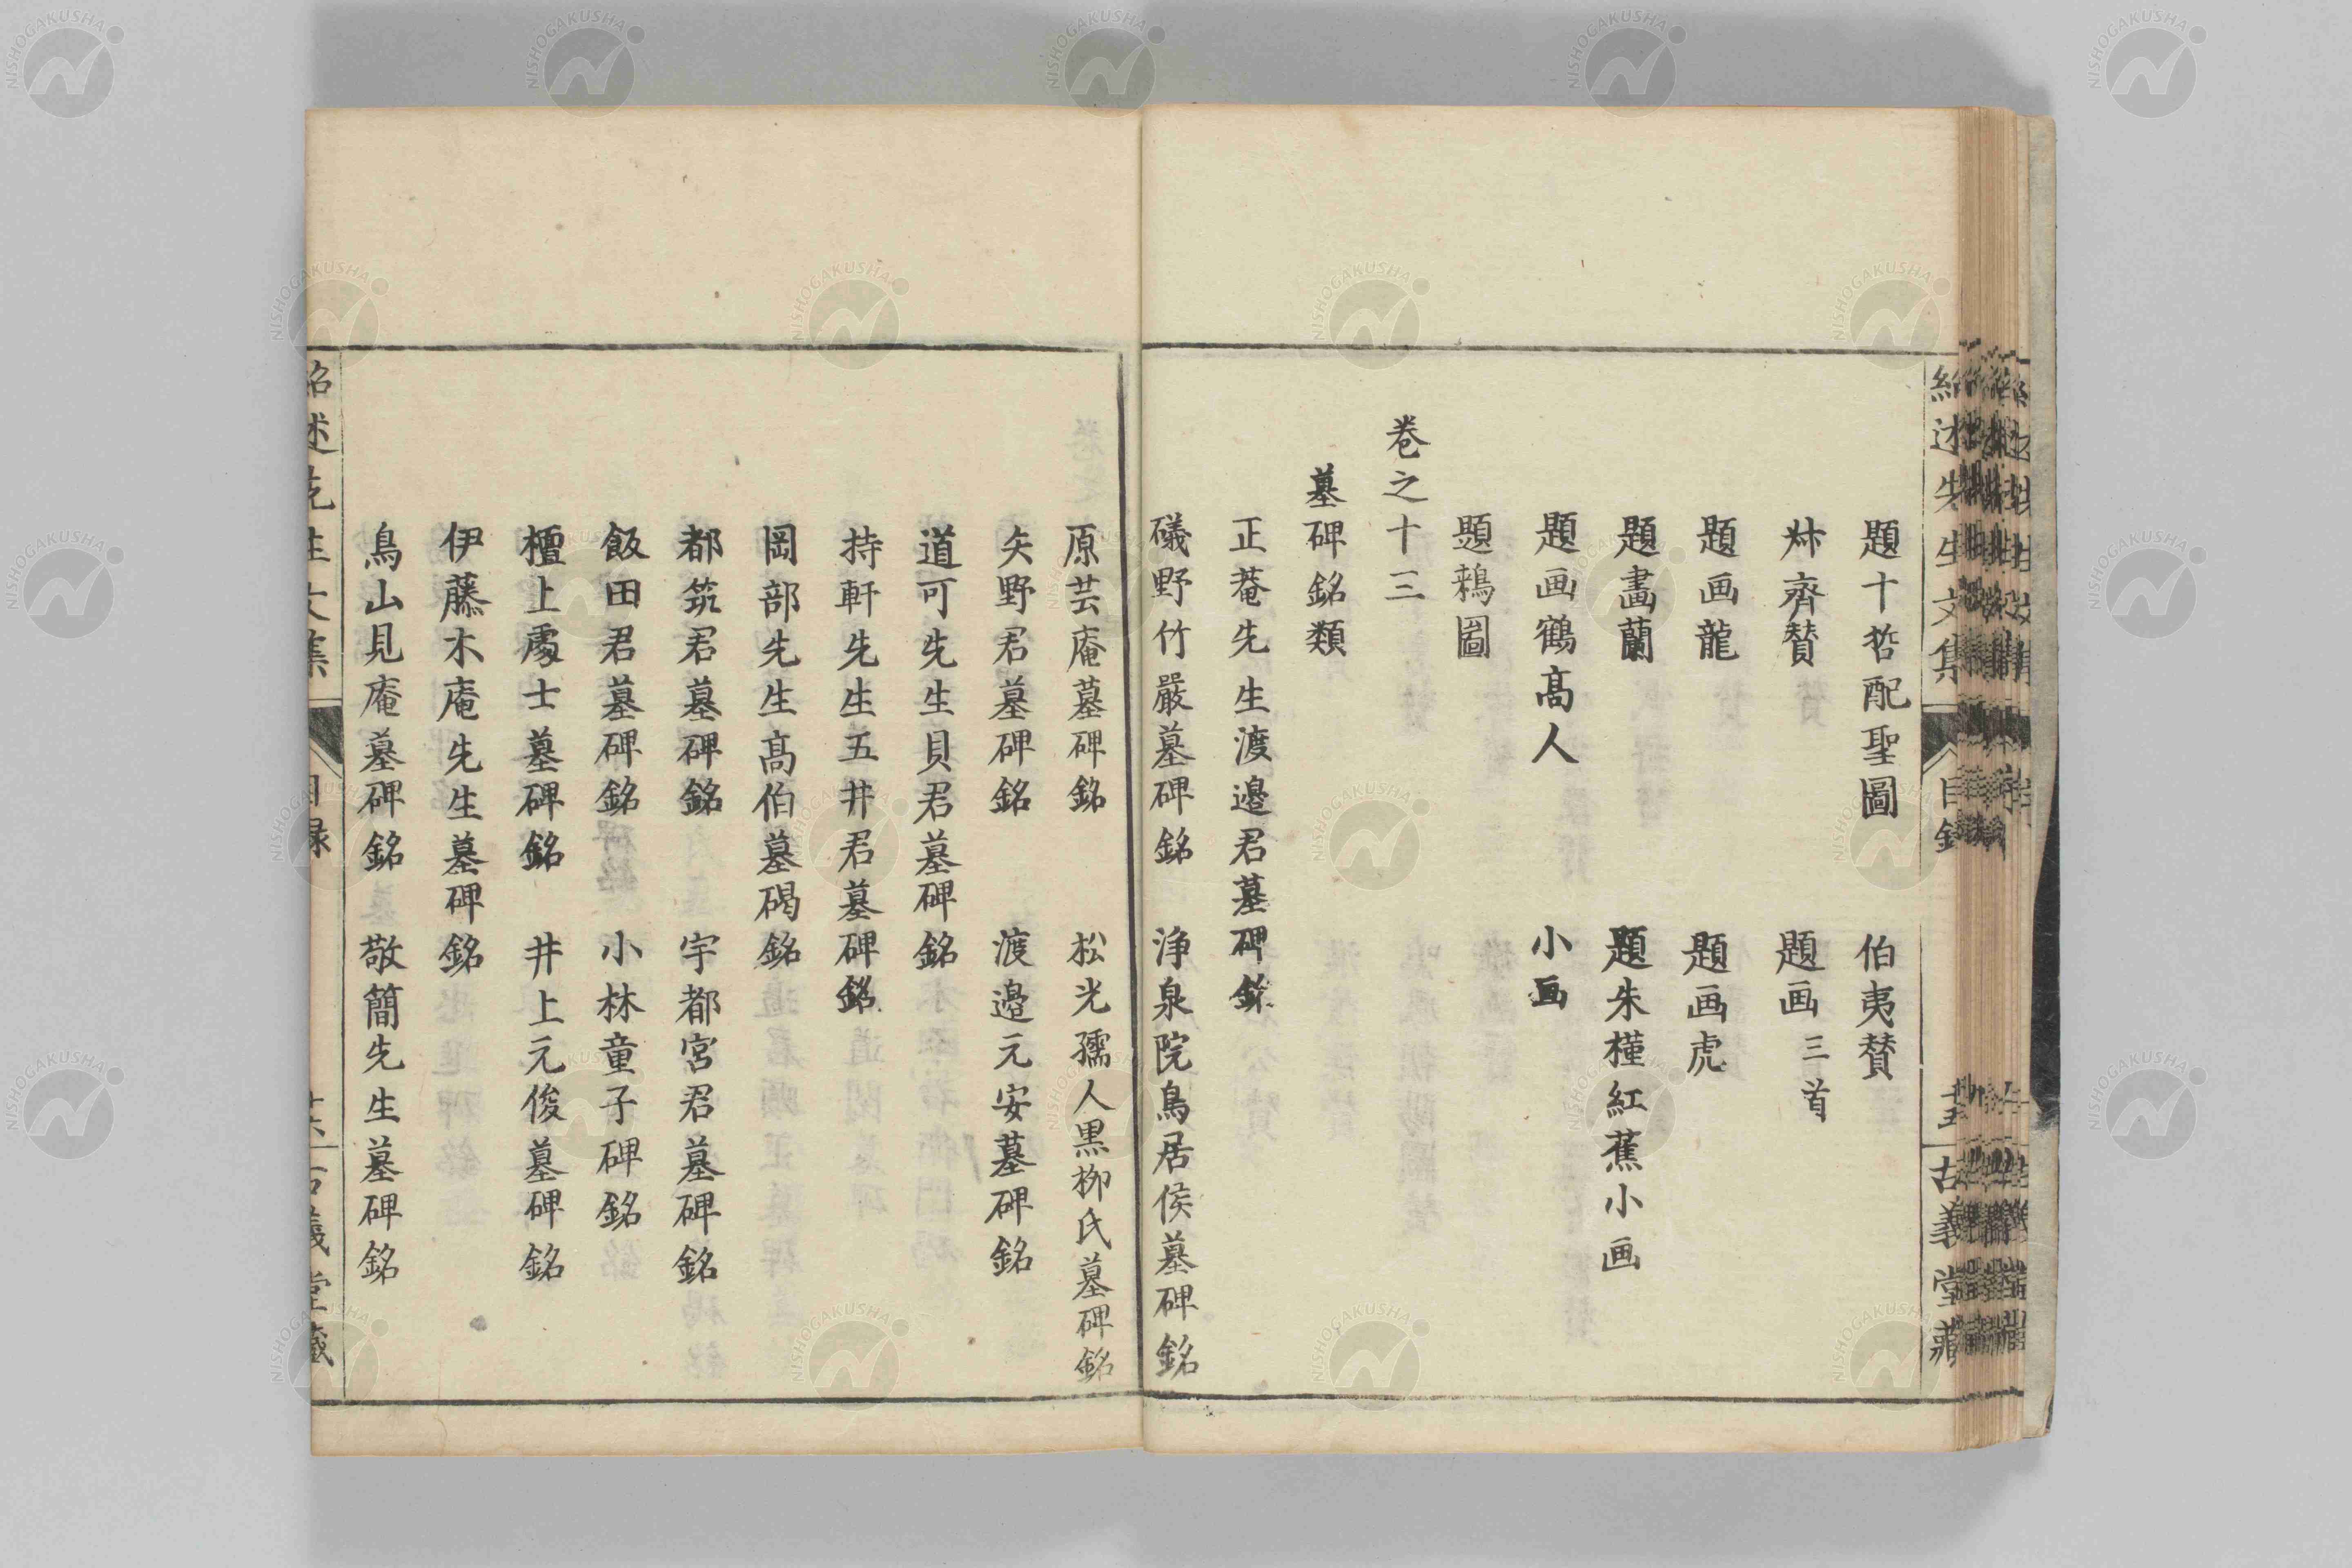 題十哲配聖圖　伯夷贊
叔齊贊　題画三首
題画龍　題画虎
題畫蘭　題朱槿紅蕉小画
題画鶴高人　小画
題鶉圖
卷之十三
墓碑銘類
正菴先生渡邉君墓碑銘
礒野竹嚴墓碑銘　浄泉院鳥居侯墓碑銘
紹述先生文集
目錄
十五
古義堂藏
原芸庵墓碑銘　松光孺人黒柳氏墓碑銘
矢野君墓碑銘　渡邉元安墓碑銘
道可先生貝君墓碑銘
持軒先生五井君墓碑銘
岡部先生高伯墓碣銘
都筑君墓碑銘　宇都宮君墓碑銘
飯田君墓碑銘　小林童子碑銘
檀上處士墓碑銘　井上元俊墓碑銘
伊藤木庵先生墓碑銘
鳥山見庵墓碑銘　敬簡先生墓碑銘
紹述先生文集
目録
古義堂藏
NISHOGAKUSHA